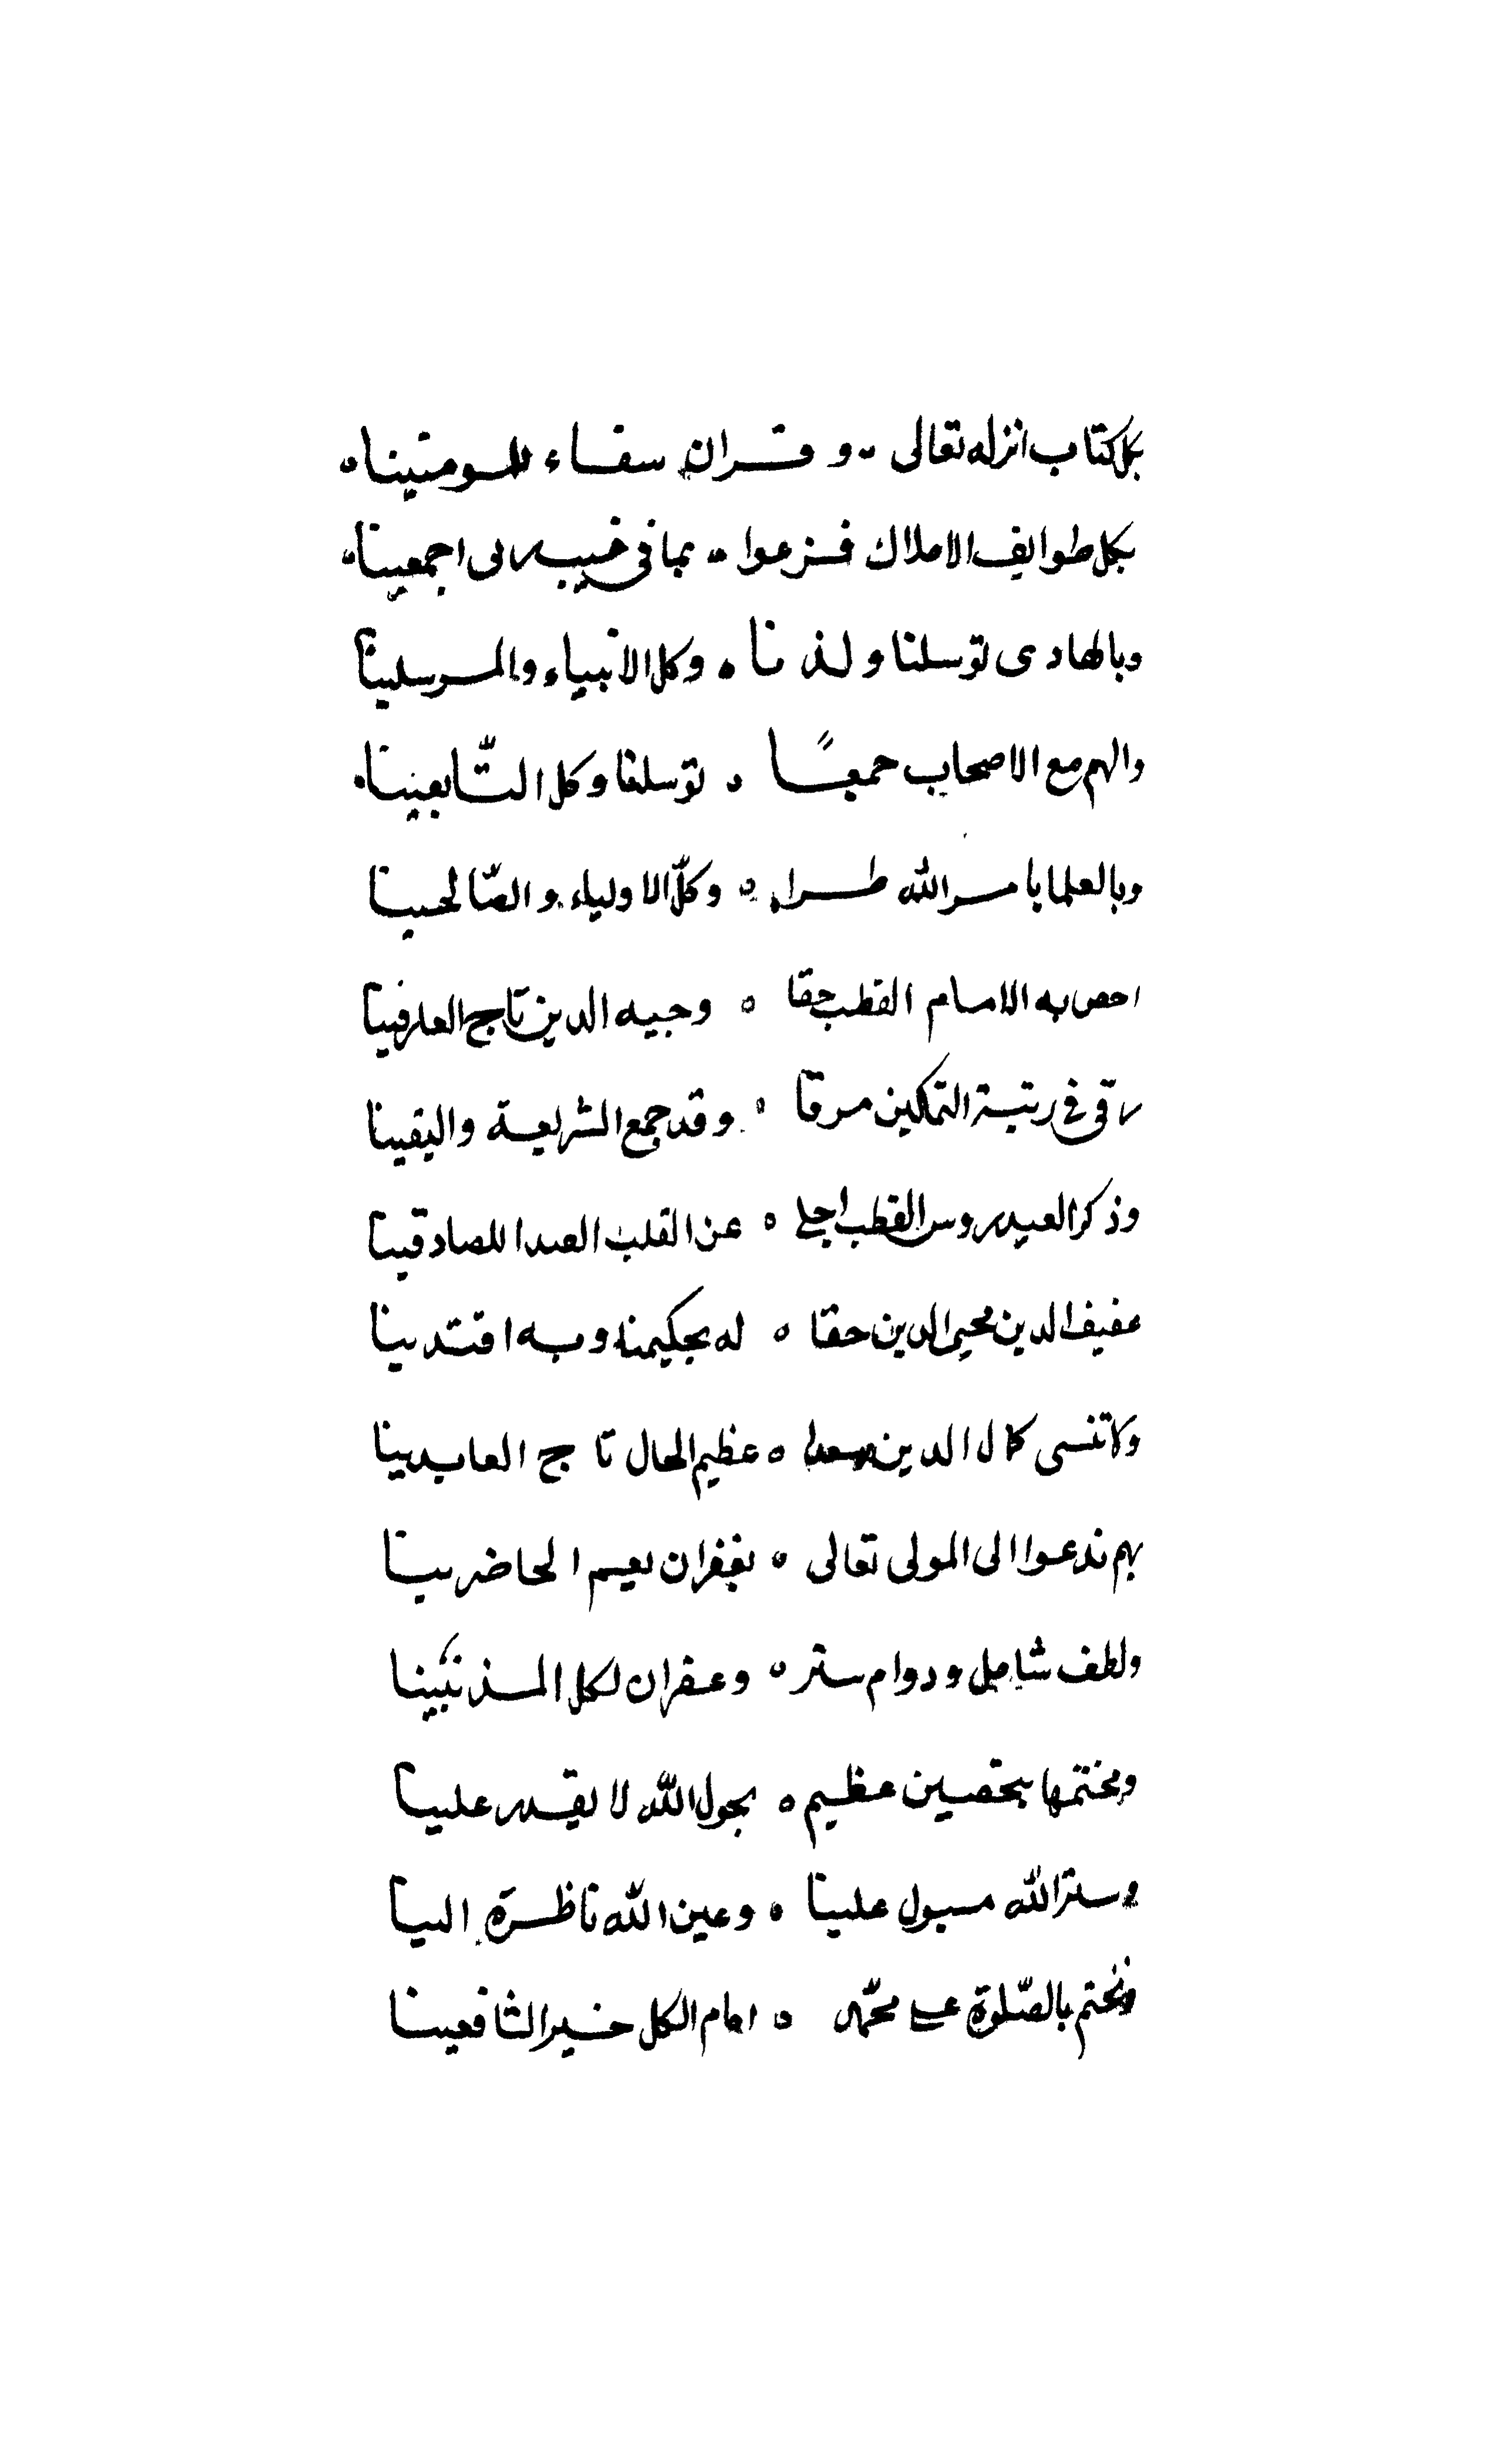 بكل كتاب انزله تعالى ه و قران سفاء للمومنينا ه
بكل طوايف الاملاك فزعوا ه بما في غيب ربي اجمعينا ه
وبالهادى توسلنا ولذ نا ه وكل الانبياء والمرسلينا
والهم مع الاصحاب جمعًا ه توسلنا وكل التّابعينا ه
وبالعلما بامر الله طرا ه وكلّ الاولياء والصّالحينا
اخص به الامام القطب حقا ه وجيه الدين تاج العارفينا
رقى فى رتبة التمكين مرقا ه وقد جمع الشريعة واليقينا
وذكر العيدروس القطب اجلى ه عن القلب الصدا للصادقينا
عفيف الدين محيى الدين حقا ه له تحكيمنا وبه اقتدينا
ولا تنسى كمال الدين سعدا ه عظيم الحال تا ج العابدينا
بهم ندعوا الى المولى تعالى ه بغفران يعم الحاضرينا
ولطف شامل ودوام ستر ه وغفران لكل المذنبينا
ونختمها بتحصين عظيم ه بحول الله لا يقدر علينا
وستر الله مسبول علينا ه وعين الله ناظرة الينا
ونختم بالصّلوة على محمّد ه امام الكل خير الشافعينا